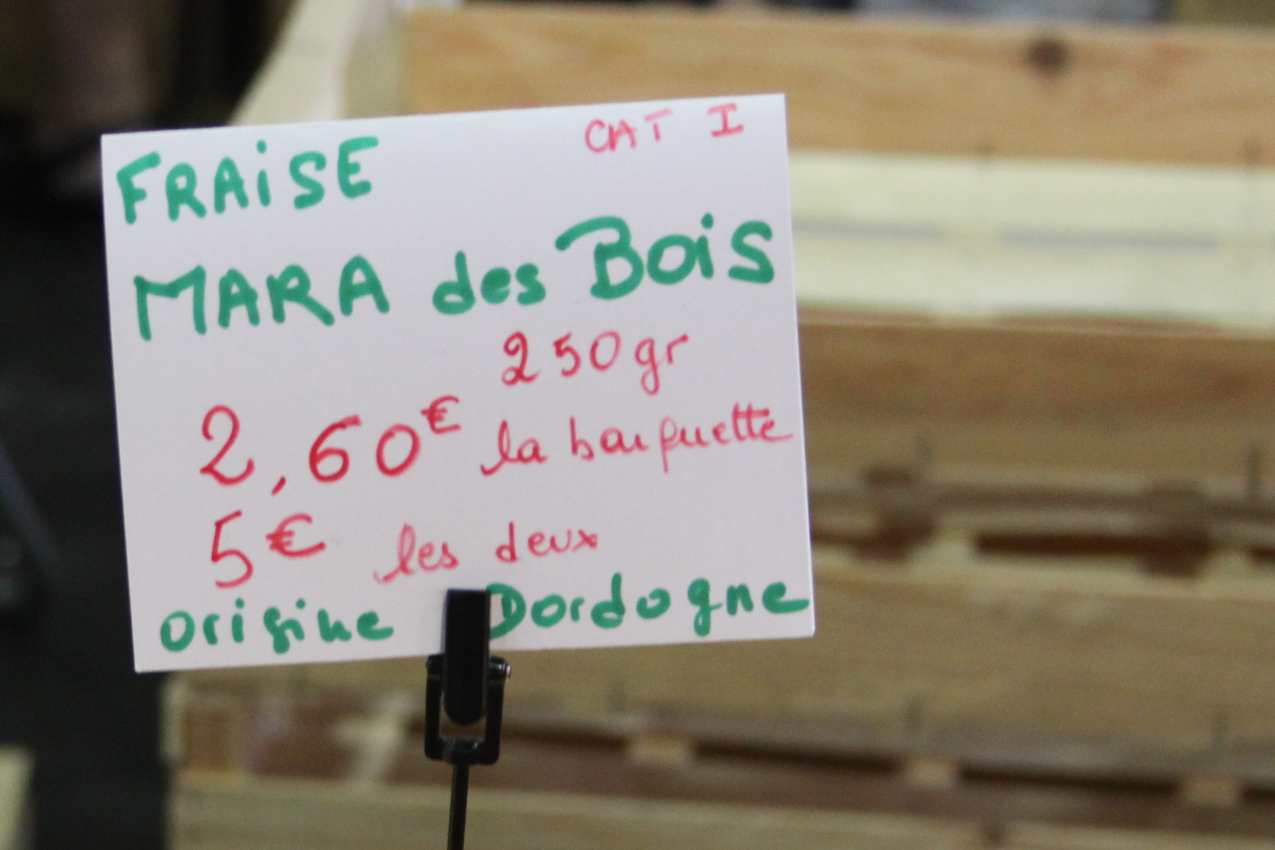 CAT I
FRAiSE
MARA des BoiS
250gr
2,60€ la barquette
5€ les deux
origine Dordogne